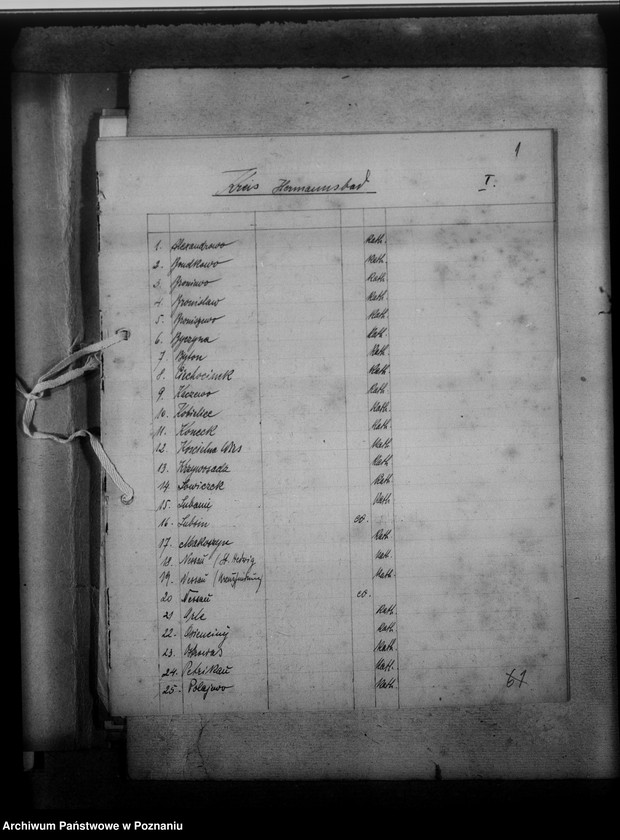 1
Kreis Hermannsbad
I.
1. Alexandrowo Kath.
2. Bondkowo Kath.
3. Broniewo Kath.
4. Bronislaw Kath.
5. Broniszewo Kath.
6. Byczyna Kath.
7. Byton Kath.
8. Ciechocinek Kath.
9. Kaczewo Kath.
10. Kobielice Kath.
11. Koneck Kath.
12. Koscielna Wies Kath.
13. Krzywosadz Kath.
14. Lowiczek Kath.
15. Lubanie Kath.
16. Lubsin ev.
17. Makoszyn Kath.
18. Nessau / St. Hedwig Kath.
19. Nessau / Kath.
20 Nessau ev.
21 Orle Kath.
22. Osienciny Kath.
23. Ostrowas Kath.
24. Petrikau Kath.
25. Polajewo Kath.
67
Archiwum Państwowe w Poznaniu